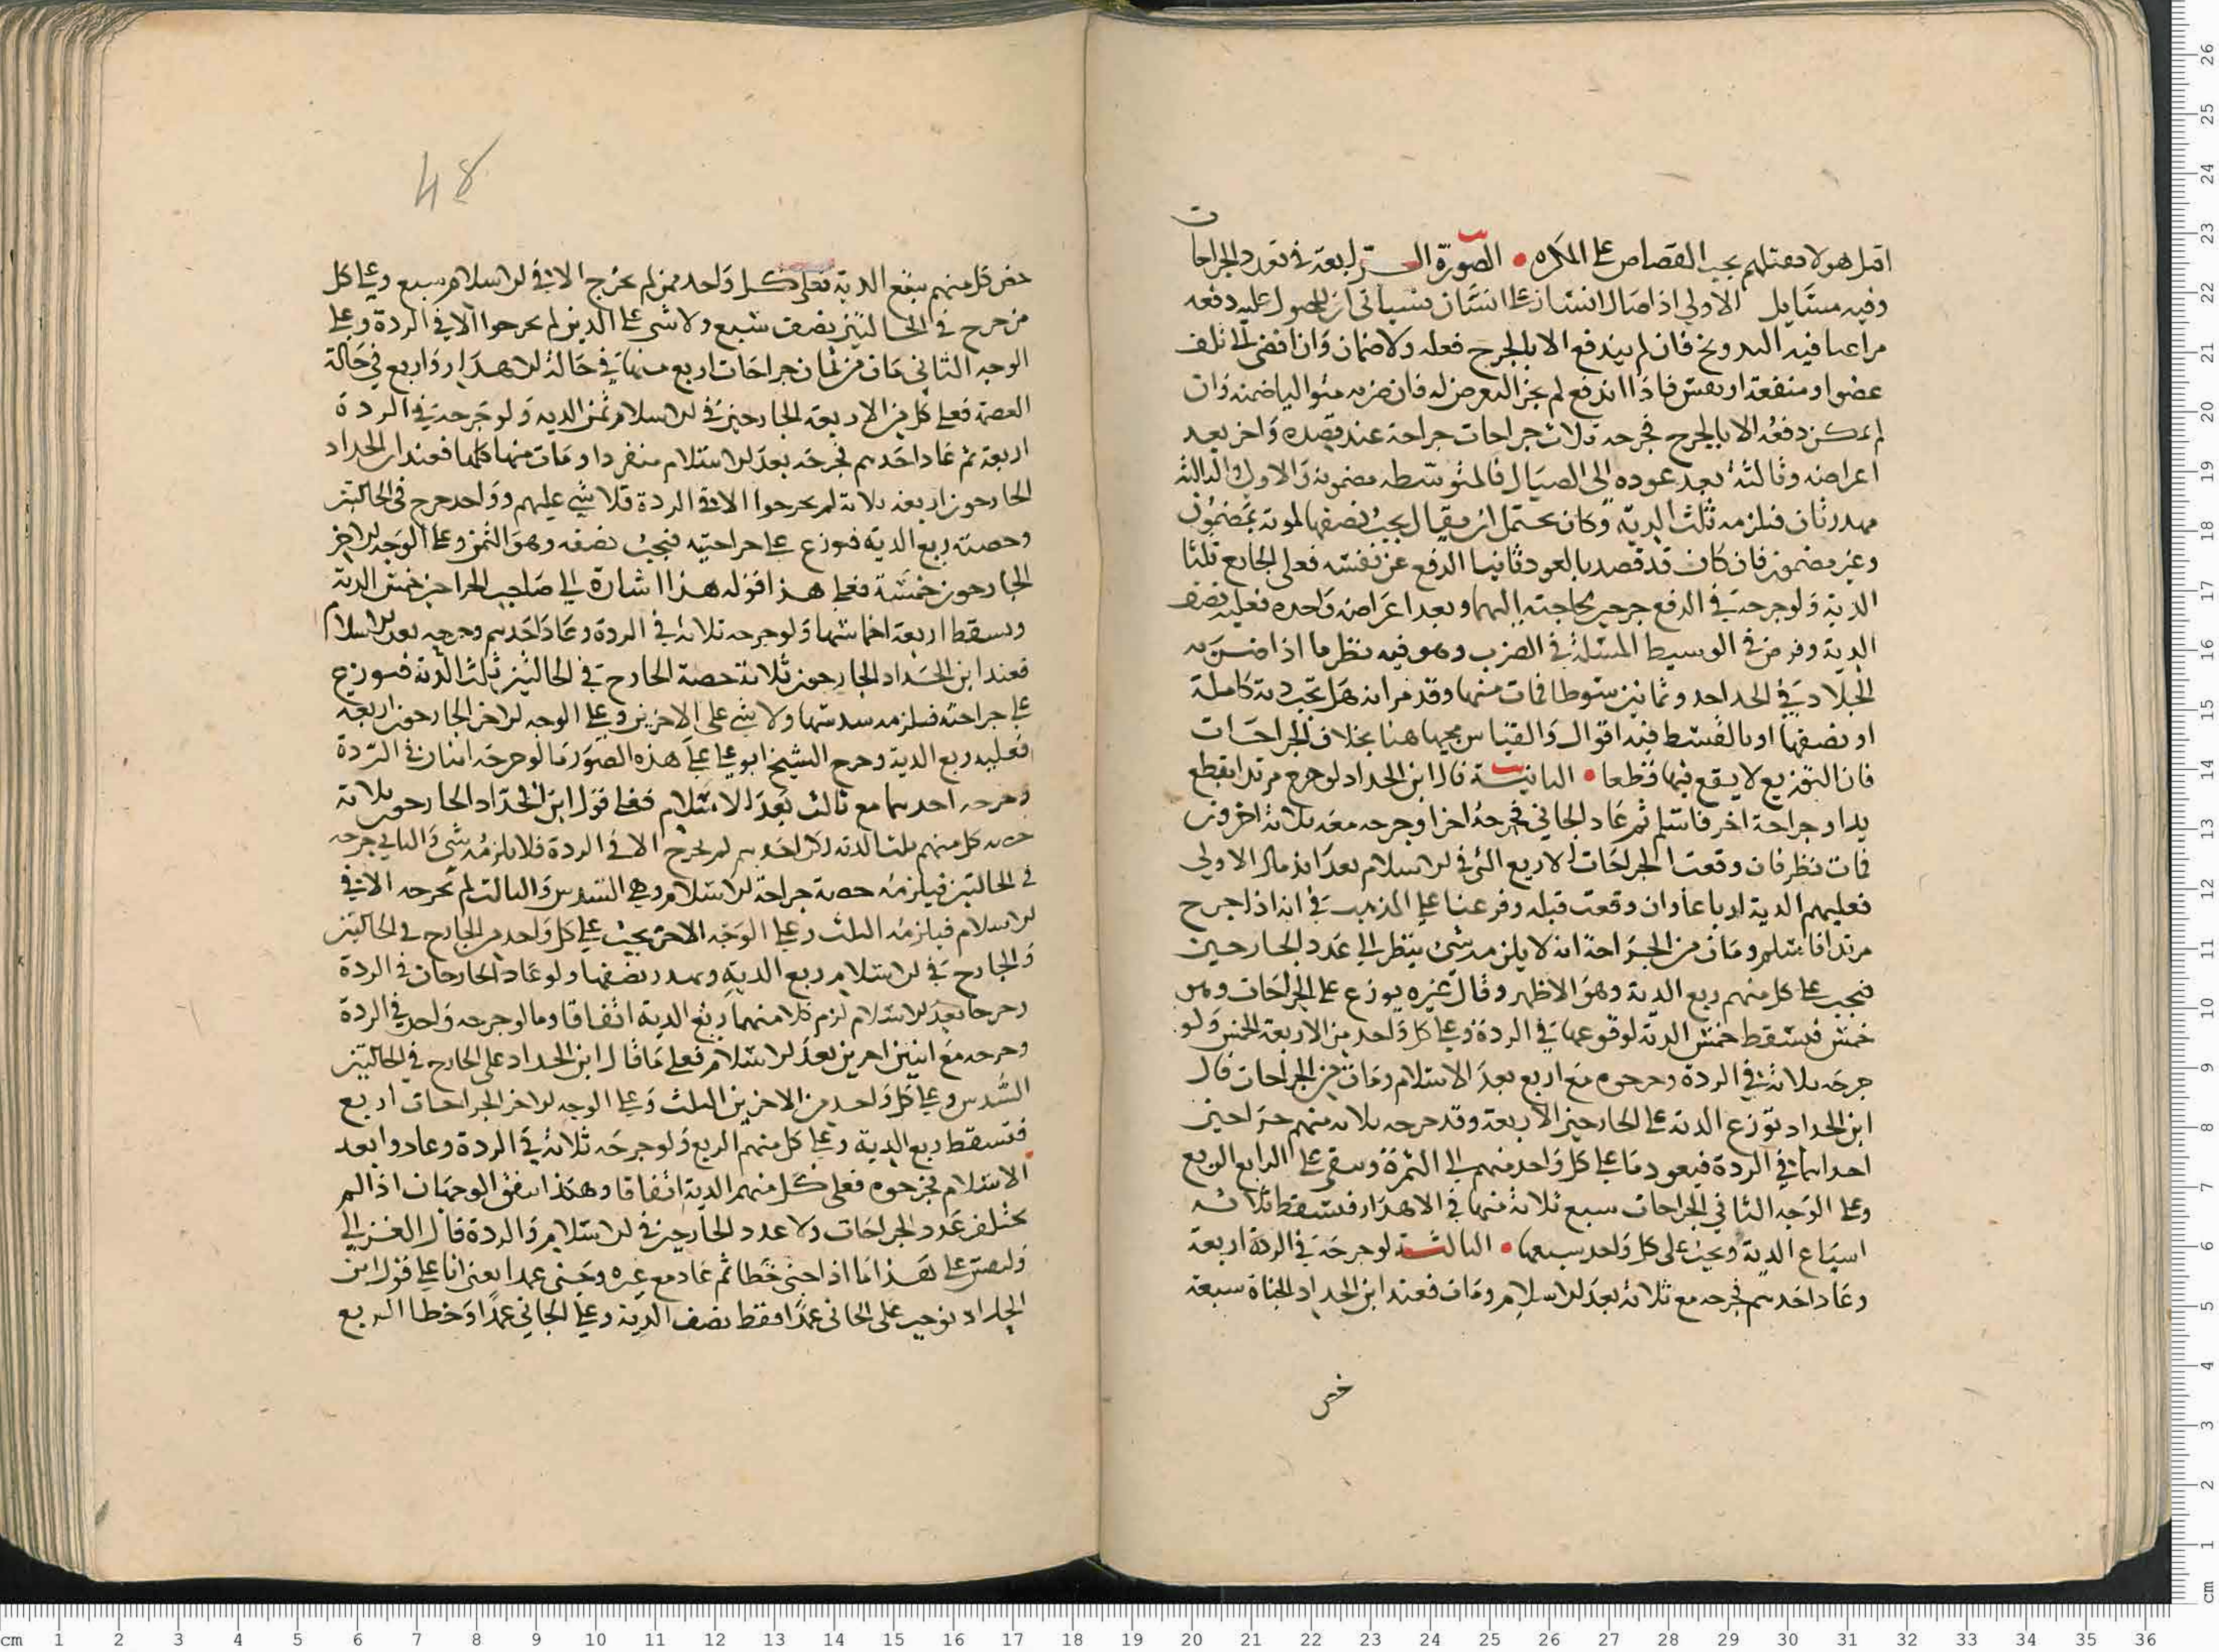 اقتل هولا فقتلهم يجب القصاص على المكره • الصورة الرابعة في تعدد الجراحات
وفيه مسايل الاولى اذا صال انسان على انسان فسياتي ان للمصول عليه دفعه
مراعيا فيه التدريج فان لم يندفع الا بالجرح فعله ولا ضمان وان افضى الى تلف
عضو او منفعة او نفس فاذا اندفع لم يجز التعرض له فان ضربه متواليا ضمنه وان
لم يمكن دفعه الا بالجرح فجرحه ثلاث جراحات جراحة عند قصده واخرى بعد
اعراضه وثالثة بعد عوده الى الصيال فالمتوسطه مضمونة والاولى والثالثة
مهدرتان فيلزمه ثلث الدية وكان يحتمل ان يقال يجب نصفها لموته بمضمون
وغير مضمون فان كان قد قصد بالعود ثانيا الدفع عن نفسه فعلى الجارح ثلثا
الدية ولو جرحه في الدفع جرحين لحاجته اليهما وبعد اعراضه واحدة فعليه نصف
الدية وفرض في الوسيط المسئلة في الضرب وهو فيه نظر ما اذا ضربه
الجلاد في الحد احد وثمانين سوطا فمات منها وقد مر انه هل تجب دية كاملة
او نصفها او بالقسط فيه اقوال والقياس مجيها هنا بخلاف الجراحات
فان التوزيع لا يقع فيها قطعا • الثانية قال ابن الحداد لو جرح مرتدا بقطع
يد او جراحة اخرى فاسلم ثم عاد الجاني فجرحه اخرى وجرحه معه ثلاثة اخرون
فمات نظر فان وقعت الجراحات الاربع التي في الاسلام بعد اندمال الاولى
فعليهم الدية ارباعا وان وقعت قبله وفرعنا على المذهب في انه اذا جرح
مرتدا فاسلم ومات من الجراحة انه لا يلزمه شئ ينظر الى عدد الجارحين
فيجب على كل منهم ربع الدية وهو الاظهر وقال غيره يوزع على الجراحات وهي
خمس فيسقط خمس الدية لوقوعها في الردة وعلى كل واحد من الاربعة الخمس ولو
جرحه ثلاثة في الردة وجرحوه مع اربع بعد الاسلام ومات من الجراحات قال
ابن الحداد توزع الدية على الجارحين الاربعة وقد جرحه ثلاثة منهم جراحين
احداهما في الردة فيعود ما على كل واحد منهم الى الثمن وبقي على الرابع الربع
وعلى الوجه الثاني الجراحات سبع ثلاثة منها في الاهدار فتسقط ثلاثة
اسباع الدية ويجب على كل واحد سبعها • الثالثة لو جرحه في الردة اربعة
وعاد احدهم فجرحه مع ثلاثة بعد الاسلام ومات فعند ابن الحداد الجناة سبعة
خص
48
خص كل منهم سبع الدية فعلى كل واحد ممن لم يخرج الا في الاسلام سبع وعلى كل
من جرح في الحالتين نصف سبع ولا شي على الذين لم يجرحوا الا في الردة وعلى
الوجه الثاني مات من ثمان جراحات اربع منها في حالة الاهدار واربع في حالة
العصمة فعلى كل من الاربعة الجارحين في الاسلام ثمن الدية ولو جرحه في الردة
اربعة ثم عاد احدهم فجرحه بعد الاسلام منفردا ومات منها كلها فعند ابن الحداد
الجارحون اربعة ثلاثة لم يجرحوا الا في الردة فلا شي عليهم وواحد جرح في الحالتين
وحصته ربع الدية فيوزع على جراحتيه فيجب نصفه وهو الثمن وعلى الوجه الاخر
الجارحون خمسة فعلى هذا قوله هذا اشارة الى صاحب الجراحين خمس الدية
ويسقط اربعة اخماسها ولو جرحه ثلاثة في الردة وعاد احدهم وجرحه بعد الاسلام
فعند ابن الحداد الجارحون ثلاثة حصة الجارح في الحالتين ثلث الدية فيوزع
على جراحته فيلزمه سدسها ولا شي على الاخرين وعلى الوجه الاخر الجارحون اربعة
فعليه ربع الدية وخرج الشيخ ابو علي على هذه الصور ما لو جرحه اثنان في الردة
وجرحه احدهما مع ثالث بعد الاسلام فعلى قول ابن الحداد الجارحون ثلاثة
حصة كل منهم ثلث الدية لكن احدهم لم يجرح الا في الردة فلا يلزمه شي والثاني جرحه
في الحالتين فيلزمه حصة جراحة الاسلام وهي السدس والثالث لم يجرحه الا في
الاسلام فيلزمه الثلث وعلى الوجه الاخر يجب على كل واحد من الجارح في الحالتين
والجارح في الاسلام ربع الدية ويهدر نصفها ولو عاد الجارحان في الردة
وجرحا بعد الاسلام لزم كلا منهما ربع الدية اتفاقا وما لو جرحه واحد في الردة
وجرحه مع اثنين اخرين بعد الاسلام فعلى ما قال ابن الحداد على الجارح في الحالتين
السدس وعلى كل واحد من الاخرين الثلث وعلى الوجه الاخر الجراحات اربع
فتسقط ربع الدية وعلى كل منهم الربع ولو جرحه ثلاثة في الردة وعادوا بعد
الاسلام فجرحوه فعلى كل منهم الدية اتفاقا وهكذا يتفق الوجهان اذا لم
يختلف عدد الجراحات ولا عدد الجارحين في الاسلام والردة قال الغزالي
وليقس على هذا ما اذا جنى خطا ثم عاد مع غيره وجنى عمدا يعني انا على قول ابن
الحداد نوجب على الجاني عمدا فقط نصف الدية وعلى الجاني عمدا وخطا الربع